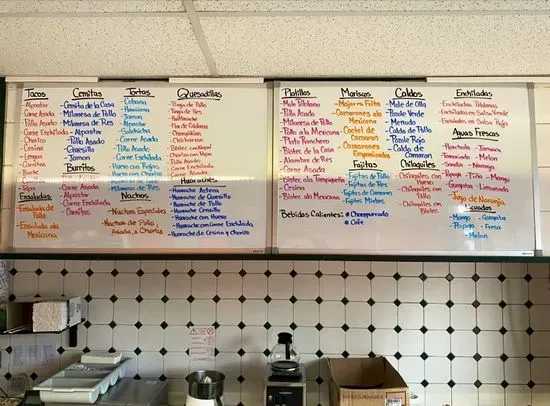 Tacos
Alpastor
Carne Asada
Pollo Asado
Carne Enchilada
Chorizo
Cesina
Lengua
Carnitas
Papa
Ensaladas
- Ensalada de Pollo
- Ensalada ala Mexicana
Cemitas
- Cemita de la Casa
- Milanesa de Pollo
- Milanesa de Res
- Alpastor
- Pollo Asado
- Quesillo
- Jamon
Burritos
Carne Asada
- Alpastor
- Carnitas
Tortas
- Cubana
- Hawiiana
- Milanesa de Pollo
- Alpastor
- Salchicha
- Carne Asada
- Pollo Asado
- Jamon
- Carne Enchilada
- Huevo con Rajas
- Huevo con Chorizo
- Milanesa de Res
Nachos
- Nachos Especiales
- Nachos de Pollo,
Asada, o Chorizo
Quesadillas
- Tinga de Pollo
- Tinga de Res
- Huitlacoche
- Flor de Calabaza
- Champiñones
- Chicharron
- Chorizo con Papa
- Pollo Asado
- Carne Asada
- Carne Enchilada
Huaraches
- Huarache Azteca
- Huarache de Quesillo
- Huarache de Pollo
- Huarache Cencillo
- Huarache con Huevo
- Huarache con Carne Enchilada
- Huarache de Cesina y Chorizo
Platillos
- Mole Poblano
- Pollo Asado
- Milanesa de Pollo
- Pollo a la Mexicana
- Plato Ranchero
- Bistec de la Casa
- Alambre de Res
- Carne Asada
- Bistec a la Tampiqueña
- Cesina
- Bistec ala Mexicana
Bebidas Calientes: * Champurrado
* Cafe
Mariscos
- Mojarra Frita
- Camarones ala Mexicana
- Coctel de Camaron
- Camarones Empanizados
Fajitas
- Fajitas de Pollo
- Fajitas de Res
- Fajitas de Camaron
- Fajitas Mixtas
Caldos
- Mole de Olla
- Pozole Verde
- Menudo
- Caldo de Pollo
- Pozole Rojo
- Caldo de Camaron
Chilaquiles
- Chilaquiles con Huevo
- Chilaquiles con Pollo
- Chilaquiles con Bistec
Enchiladas
- Enchiladas Poblanas
- Enchiladas en Salsa Verde
- Enchiladas en Salsa Roja
Aguas Frescas
- Horchata - Jamaica
- Tamarindo - Melon
- Sandia - Naranja
- Papaya - Piña - Mango
- Guayaba - Limonada
- Jugo de Naranja
Licuados
- Mango - Guayaba
- Papaya - Fresa
- Melon